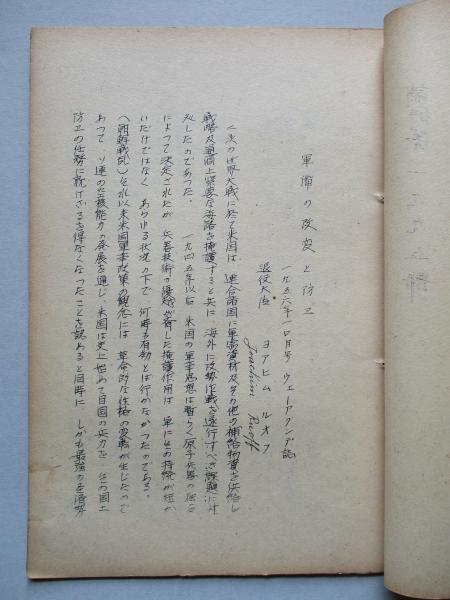 軍備の改変と防空
一九五六年一〇月号 ウェーアクンデ誌
退役大佐 ヨアヒム ルオフ
Joachim Ruoff
二次の世界大戦に於て米国は、連合諸国に軍需資材及その他の補給物資を供給し
戦略及通商上緊要な海路を掩護すると共に、海外に攻勢作戦を遂行すべき課題に対
処したのであった。 一九四五年以后 米国の軍事思想は暫らく原子兵器の独占
によって決定されたが 兵器技術の優越が齎した掩護作用は 単にその持続が短か
いだけではなく あらゆる状況の下で 何時も有効とは行かなかったのである。
(朝鮮戦乱) それ以来米国軍事政策の観念には 革命的な性格の変転が生じたので
あって ソ連の空核能力の発展を通じ、米国は史上始めて自国の兵力を その国土
防空の任務に就けざるを得なくなったことを認めると同時に しかも最強力な海界